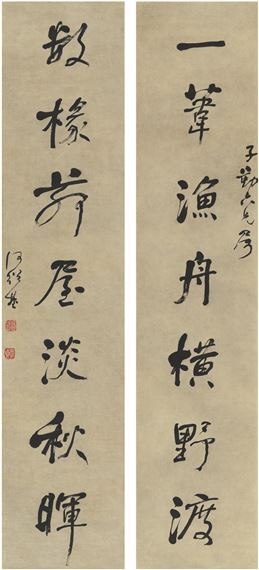 子勤六兄屬
一葦漁舟橫野渡
數椽茆屋淡秋暉
何紹基